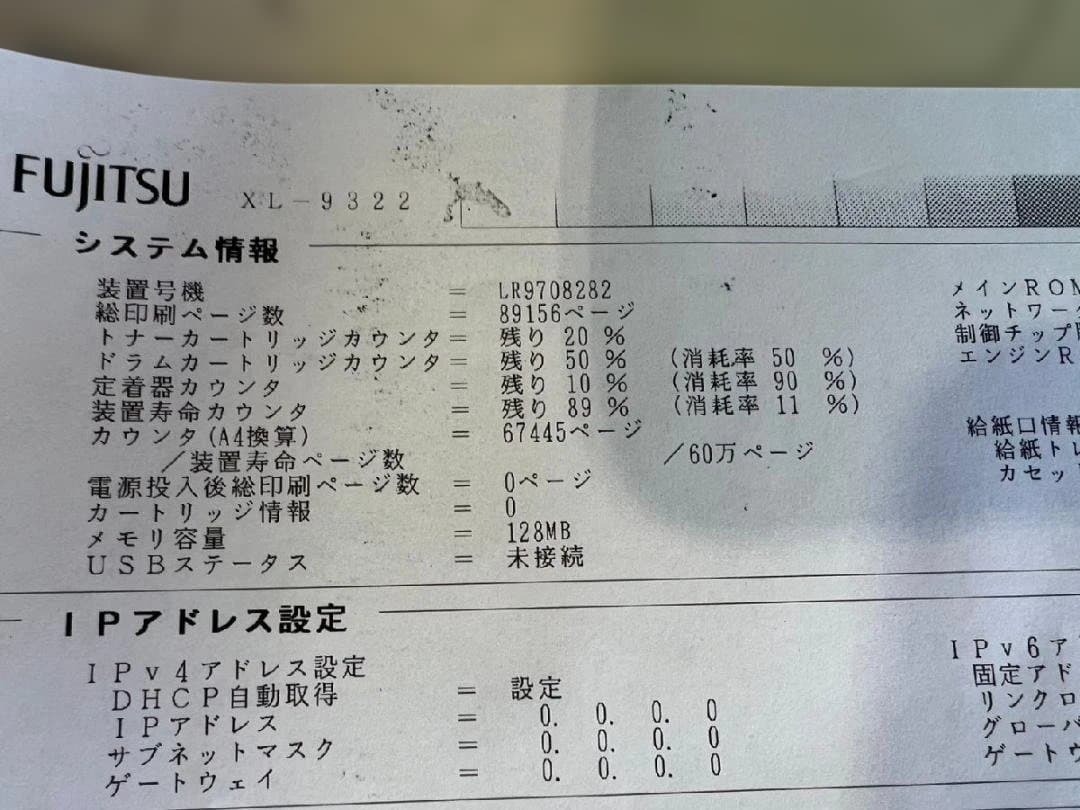 FUJITSU XL-9322
システム情報
装置号機 = LR9708282 メインROM
総印刷ページ数 = 89156ページ ネットワーク
トナーカートリッジカウンタ = 残り 20 % 制御チップ
ドラムカートリッジカウンタ = 残り 50 % (消耗率 50 %) エンジンR
定着器カウンタ = 残り 10 % (消耗率 90 %)
装置寿命カウンタ = 残り 89 % (消耗率 11 %)
カウンタ(A4換算) = 67445ページ 給紙口情報
/装置寿命ページ数 /60万ページ 給紙トレ
電源投入後総印刷ページ数 = 0ページ カセッ
カートリッジ情報 = 0
メモリ容量 = 128MB
USBステータス = 未接続
IPアドレス設定
IPv4アドレス設定 IPv6ア
DHCP自動取得 = 設定 固定アド
IPアドレス = 0. 0. 0. 0 リンクロ
サブネットマスク = 0. 0. 0. 0 グローバ
ゲートウェイ = 0. 0. 0. 0 ゲートウ